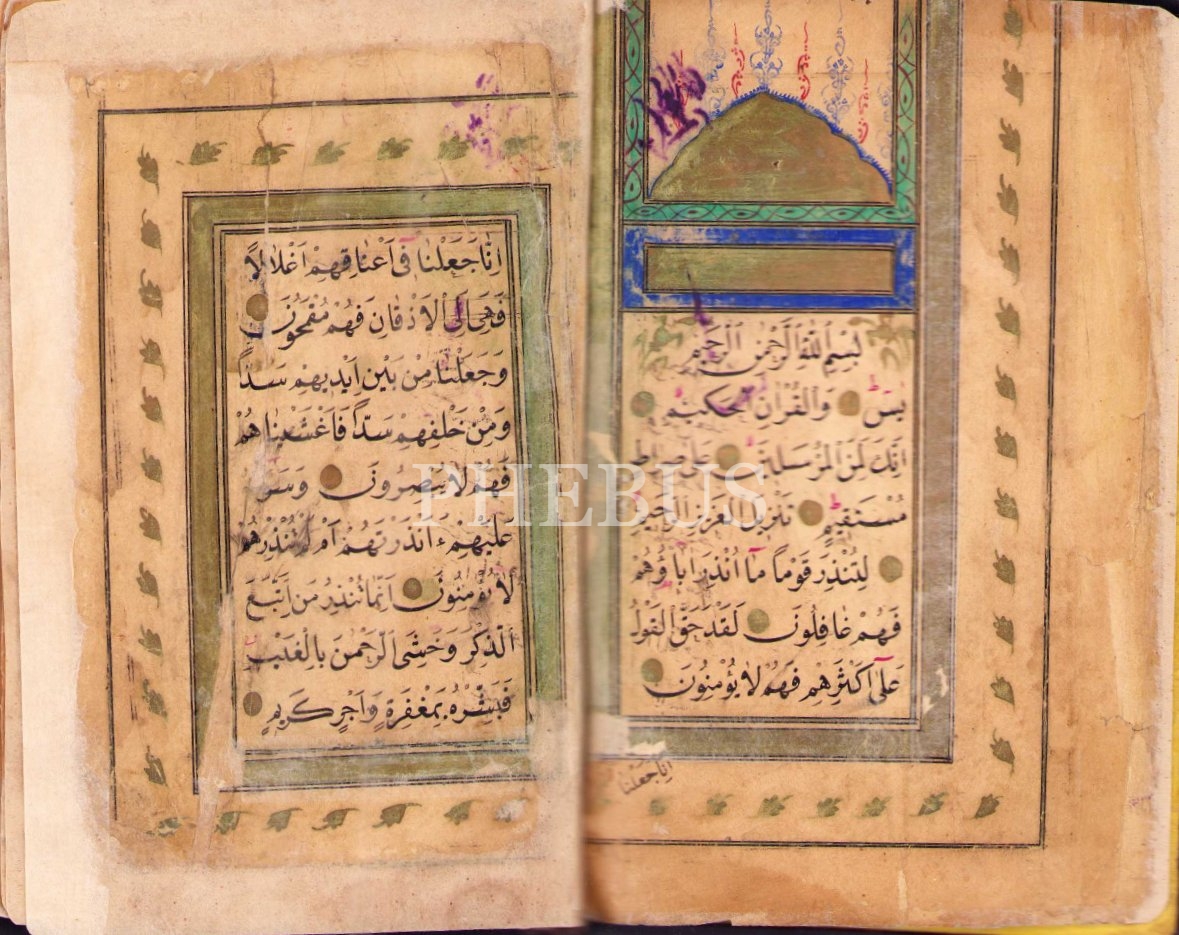 بِسْمِ اللّٰهِ الرَّحْمٰنِ الرَّحِيمِ
يٰسٓ وَالْقُرْاٰنِ الْحَكِيمِ
اِنَّكَ لَمِنَ الْمُرْسَلِينَ عَلٰى صِرَاطٍ
مُسْتَقِيمٍ تَنْزِيلَ الْعَزِيزِ الرَّحِيمِ
لِتُنْذِرَ قَوْمًا مَٓا اُنْذِرَ اٰبَٓاؤُهُمْ
فَهُمْ غَافِلُونَ لَقَدْ حَقَّ الْقَوْلُ
عَلٰٓى اَكْثَرِهِمْ فَهُمْ لَا يُؤْمِنُونَ
اِنَّا جَعَلْنَا
اِنَّا جَعَلْنَا فٓى اَعْنَاقِهِمْ اَغْلَالًا
فَهِىَ اِلَى الْاَذْقَانِ فَهُمْ مُقْمَحُونَ
وَجَعَلْنَا مِنْ بَيْنِ اَيْدِيهِمْ سَدًّا
وَمِنْ خَلْفِهِمْ سَدًّا فَاَغْشَيْنَاهُمْ
فَهُمْ لَا يُبْصِرُونَ وَسَوَٓاءٌ
عَلَيْهِمْ ءَاَنْذَرْتَهُمْ اَمْ لَمْ تُنْذِرْهُمْ
لَا يُؤْمِنُونَ اِنَّمَا تُنْذِرُ مَنِ اتَّبَعَ
الذِّكْرَ وَخَشِىَ الرَّحْمٰنَ بِالْغَيْبِ
فَبَشِّرْهُ بِمَغْفِرَةٍ وَاَجْرٍ كَرِيمٍ
PHEBUS